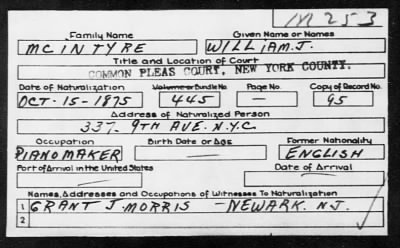 M 253
Family Name Given Name or Names
MCINTYRE WILLIAM. J.
Title and Location of Court
COMMON PLEAS COURT, NEW YORK COUNTY.
Date of Naturalization Volume or Bundle No. Page No. Copy of Record No.
OCT-15-1875 445 — 95
Address of Naturalized Person
337. 9TH AVE. N.Y.C.
Occupation Birth Date or Age Former Nationality
PIANO MAKER ENGLISH
Port of Arrival in the United States Date of Arrival
Names, Addresses and Occupations of Witnesses To Naturalization
1 GRANT J. MORRIS — NEWARK. N.J.
2